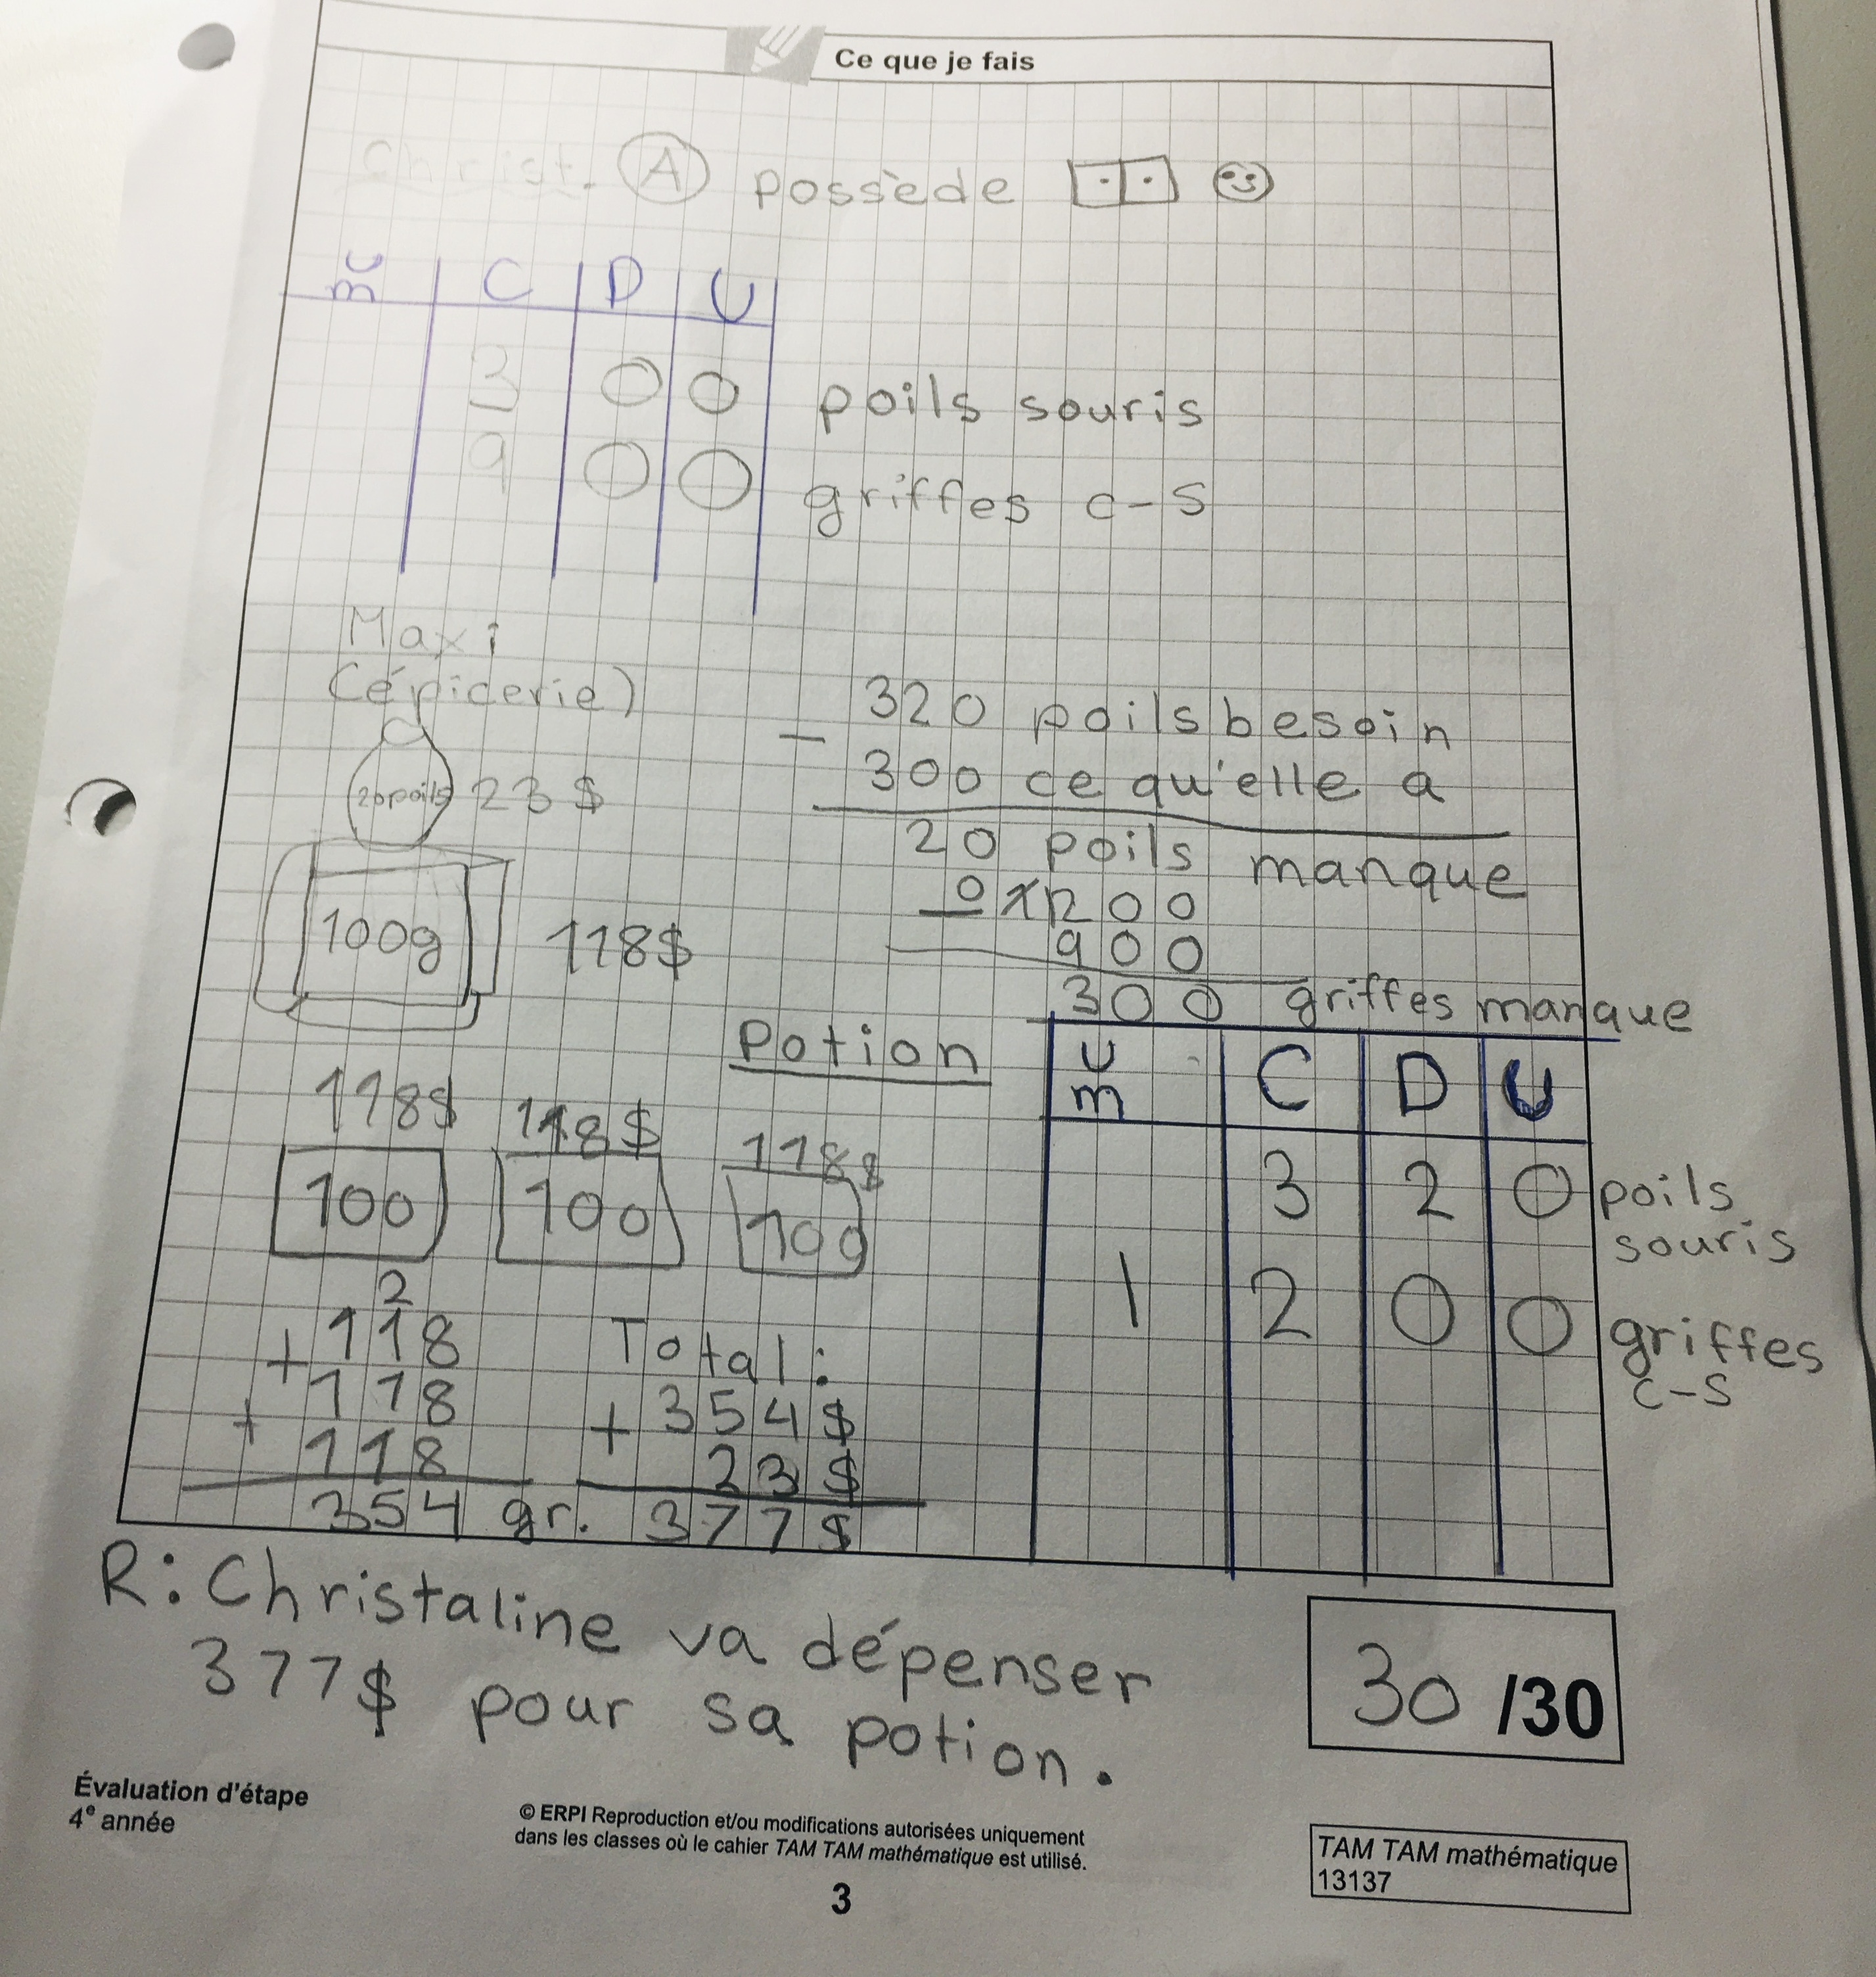 Ce que je fais
Christ. A possède
um C D U
3 0 0 poils souris
9 0 0 griffes c-s
Maxi
(épicerie)
20poils 23 $
100g 118$
- 320 poils besoin
300 ce qu'elle a
20 poils manque
1200
900
300 griffes manque
Potion
um C D U
3 2 0 poils souris
1 2 0 0 griffes c-s
118$ 118$ 118$
100 100 100
2
+ 118
+ 118
118
354 gr.
Total:
+ 354$
23$
377$
R: Christaline va dépenser
377$ pour sa potion.
30 /30
Évaluation d'étape
4e année
© ERPI Reproduction et/ou modifications autorisées uniquement
dans les classes où le cahier TAM TAM mathématique est utilisé.
3
TAM TAM mathématique
13137